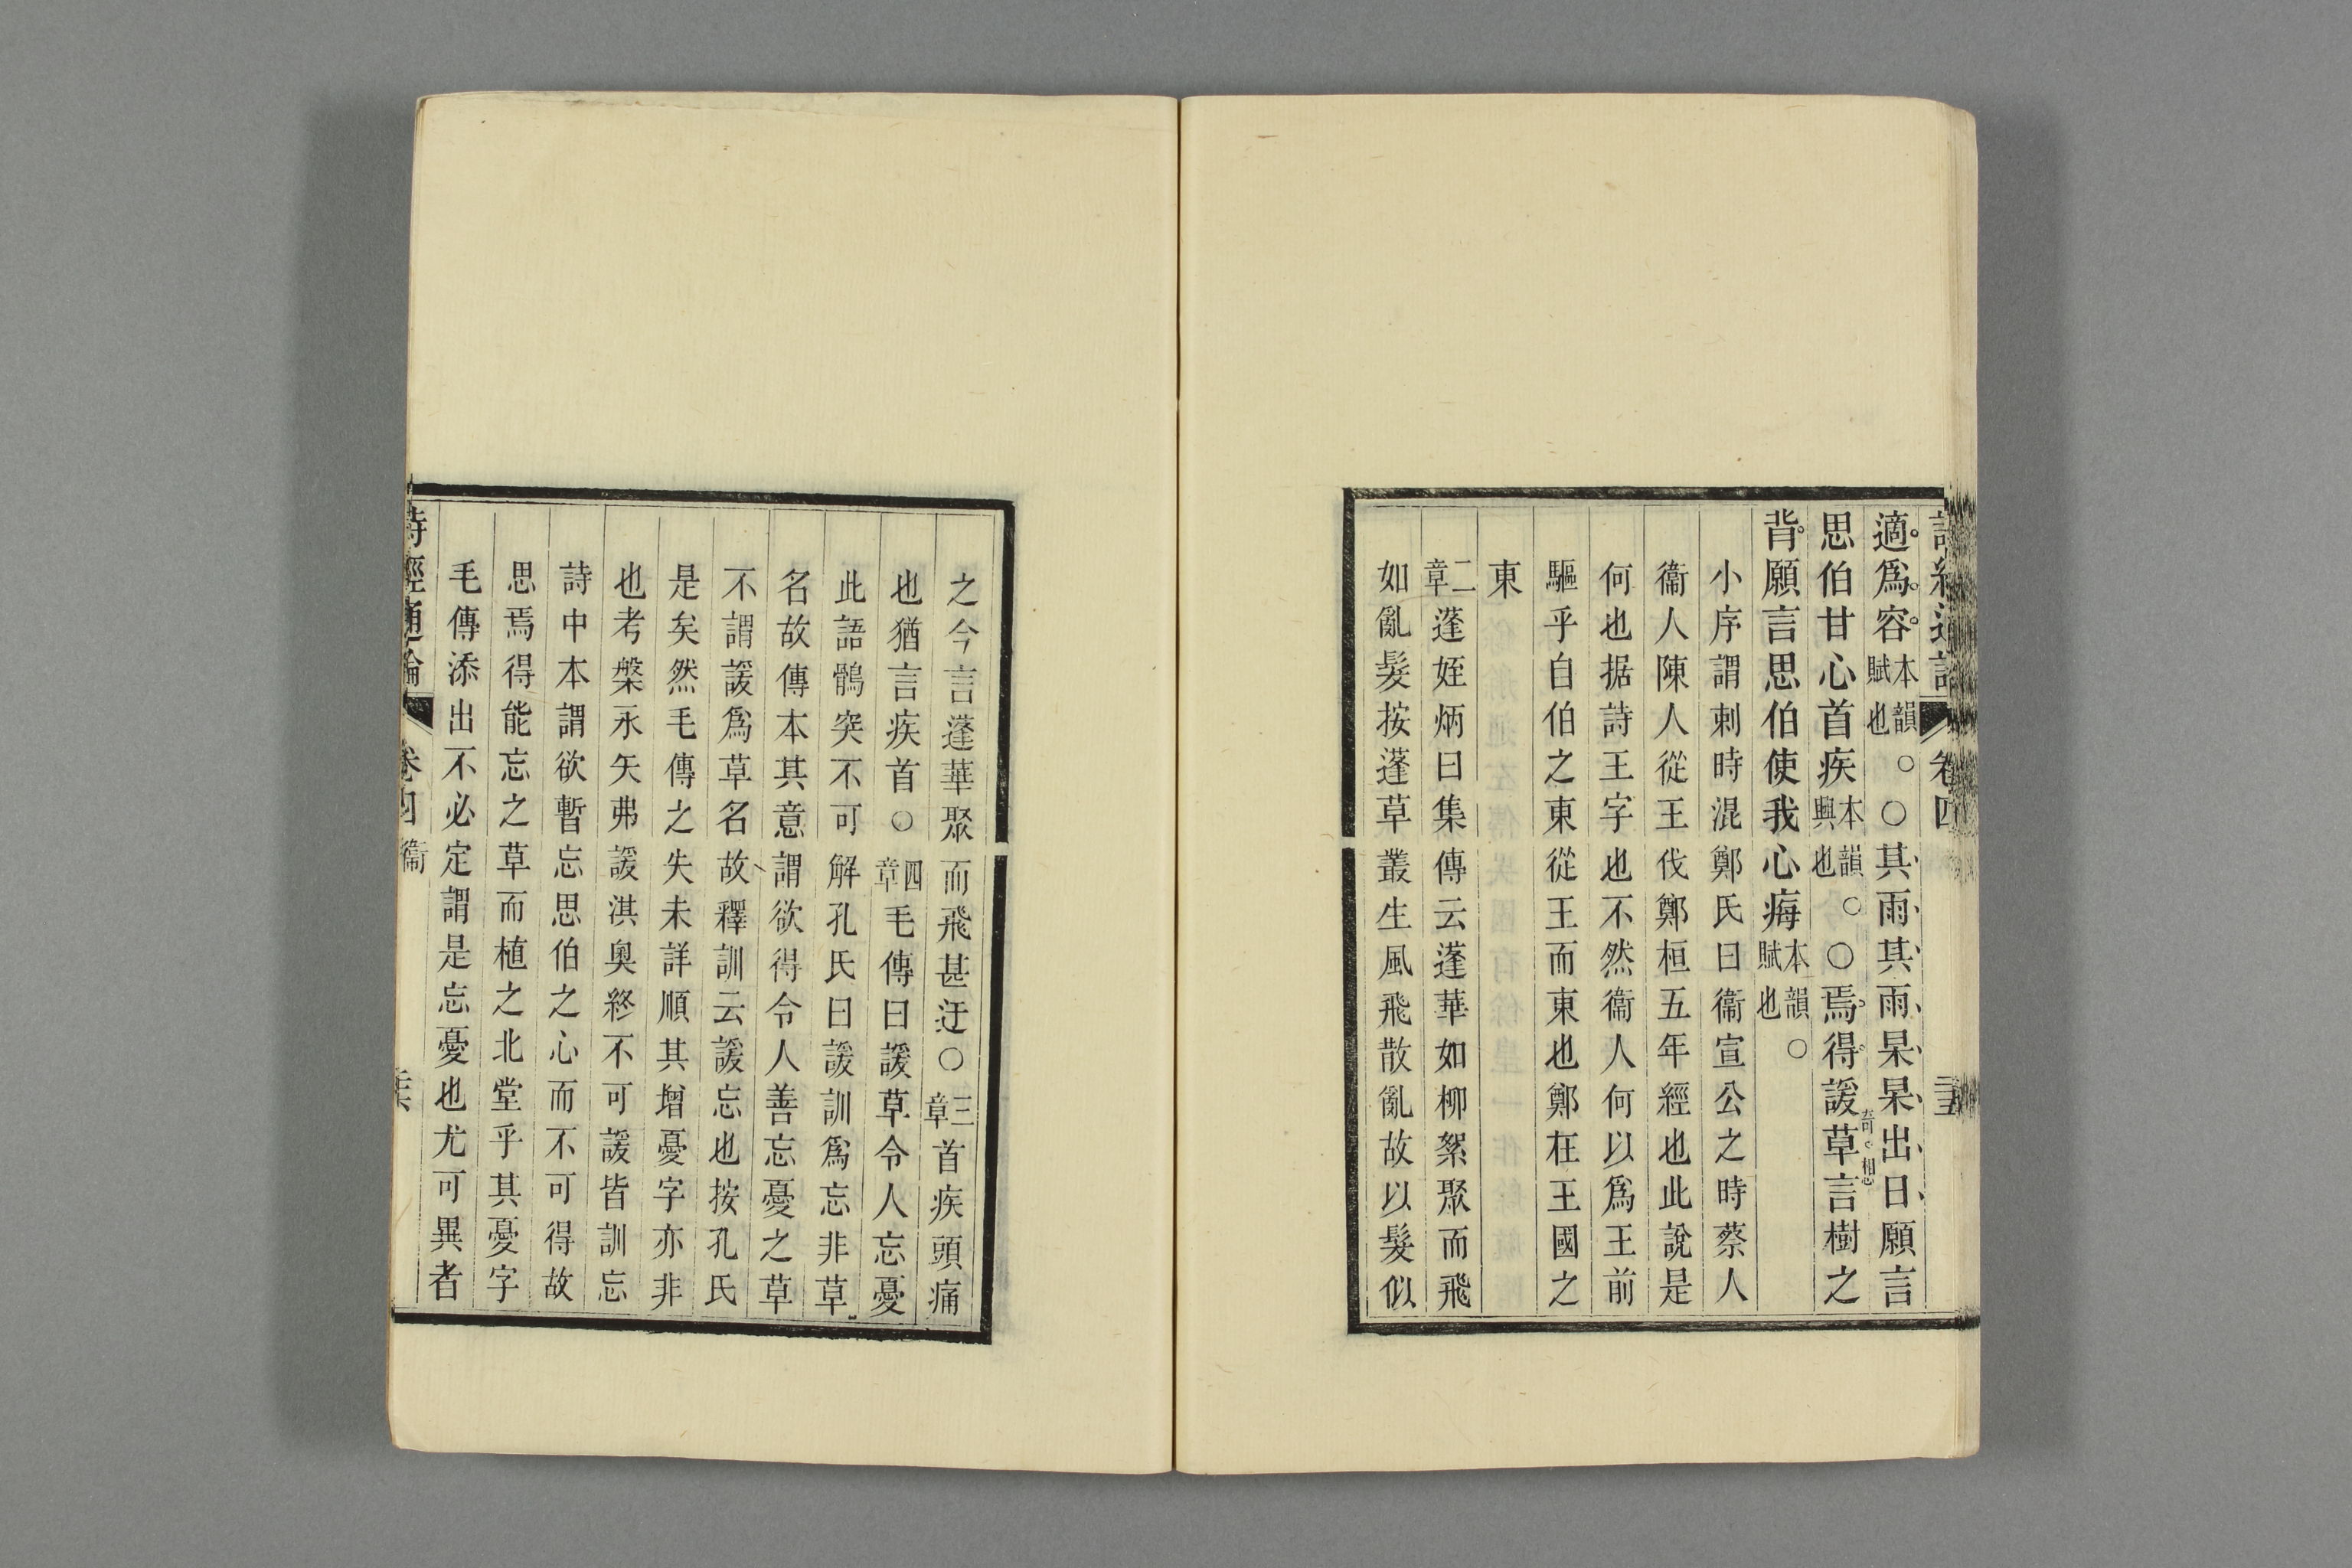 適爲容本韻賦也○○其雨其雨杲杲出日願言
思伯甘心首疾本韻興也○○焉得諼草言樹之
背願言思伯使我心痗本韻賦也○
小序謂刺時混鄭氏曰衞宣公之時蔡人
衞人陳人從王伐鄭桓五年經也此說是
何也据詩王字也不然衞人何以爲王前
驅乎自伯之東從王而東也鄭在王國之
東
二章蓬姪炳曰集傳云蓬華如柳絮聚而飛
如亂髮按蓬草叢生風飛散亂故以髮似
之今言蓬華聚而飛甚迂○三章首疾頭痛
也猶言疾首○四章毛傳曰諼草令人忘憂
此語鶻突不可解孔氏曰諼訓爲忘非草
名故傳本其意謂欲得令人善忘憂之草
不謂諼爲草名故釋訓云諼忘也按孔氏
是矣然毛傳之失未詳順其增憂字亦非
也考槃永矢弗諼淇奧終不可諼皆訓忘
詩中本謂欲暫忘思伯之心而不可得故
思焉得能忘之草而植之北堂乎其憂字
毛傳添出不必定謂是忘憂也尤可異者
詩經通論 卷四 衞